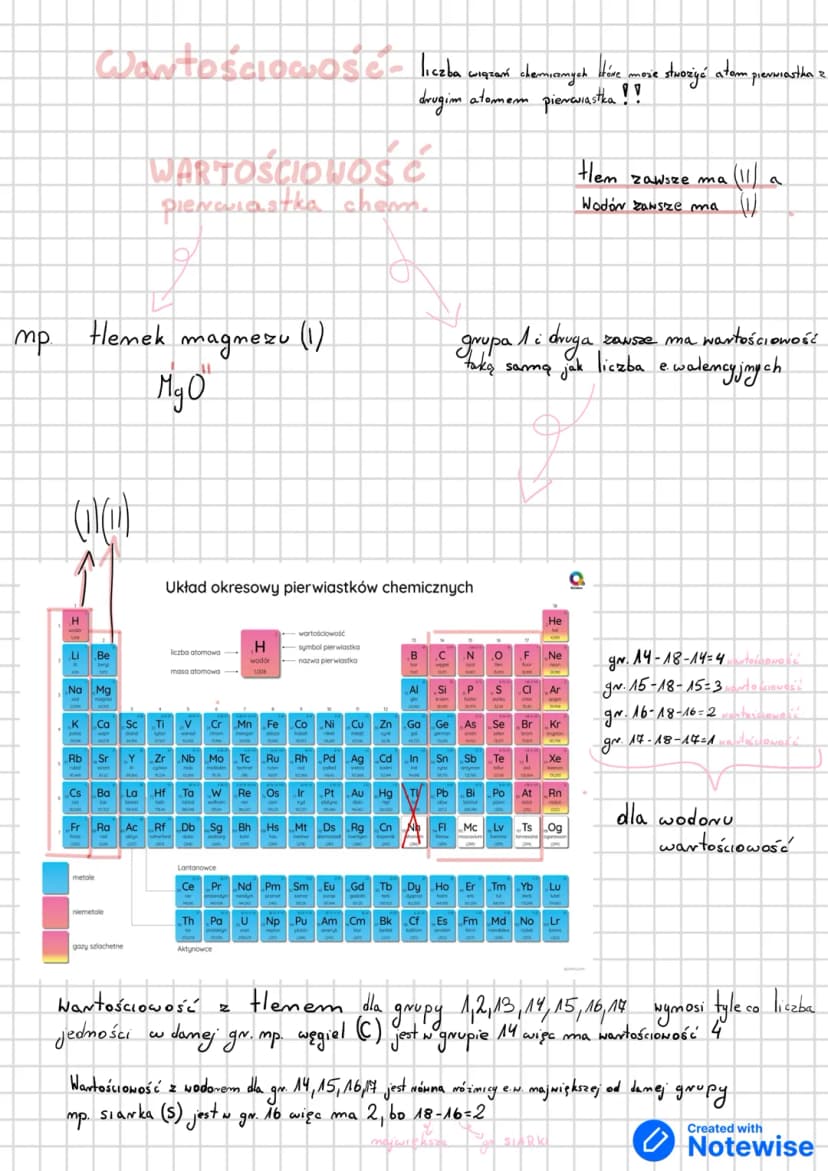 Wartościowość- liczba wiązań chemicznych które może stwożyć atom pierwiastka z
drugim atomem pierwiastka !!
WARTOŚCIOWOŚĆ
pierwiastka chem.
tlen zawsze ma (II) a
Wodór zawsze ma (I)
np. tlenek magnezu (I)
MgO
grupa 1 i druga zawsze ma wartościowość
taką samą jak liczba e. walencyjnych
(I)(II)
Układ okresowy pierwiastków chemicznych
liczba atomowa
masa atomowa
H
wodór
1,008
wartościowość
symbol pierwiastka
nazwa pierwiastka
1 18
H He
2 13 14 15 16 17
Li Be B C N O F Ne
Na Mg Al Si P S Cl Ar
3 4 5 6 7 8 9 10 11 12
K Ca Sc Ti V Cr Mn Fe Co Ni Cu Zn Ga Ge As Se Br Kr
Rb Sr Y Zr Nb Mo Tc Ru Rh Pd Ag Cd In Sn Sb Te I Xe
Cs Ba La Hf Ta W Re Os Ir Pt Au Hg Tl Pb Bi Po At Rn
Fr Ra Ac Rf Db Sg Bh Hs Mt Ds Rg Cn Nh Fl Mc Lv Ts Og
metale
niemetale
gazy szlachetne
Lantanowce
Ce Pr Nd Pm Sm Eu Gd Tb Dy Ho Er Tm Yb Lu
Th Pa U Np Pu Am Cm Bk Cf Es Fm Md No Lr
Aktynowce
gr. 14-18-14=4 wartościowość
gr. 15-18-15=3 wartościowość
gr. 16-18-16=2 wartościowość
gr. 17-18-17=1 wartościowość
dla wodoru
wartościowość
Wartościowość z tlenem dla grupy 1,2,13,14,15,16,17 wynosi tyle co liczba
jedności w danej gr. np. węgiel (C) jest w grupie 14 więc ma wartościowość 4
Wartościowość z wodorem dla gr. 14,15,16,17 jest równa różnicy e.w. największej od danej grupy
np. siarka (S) jest w gr. 16 więc ma 2, bo 18-16=2
największa gr SIARKI
Created with
Notewise